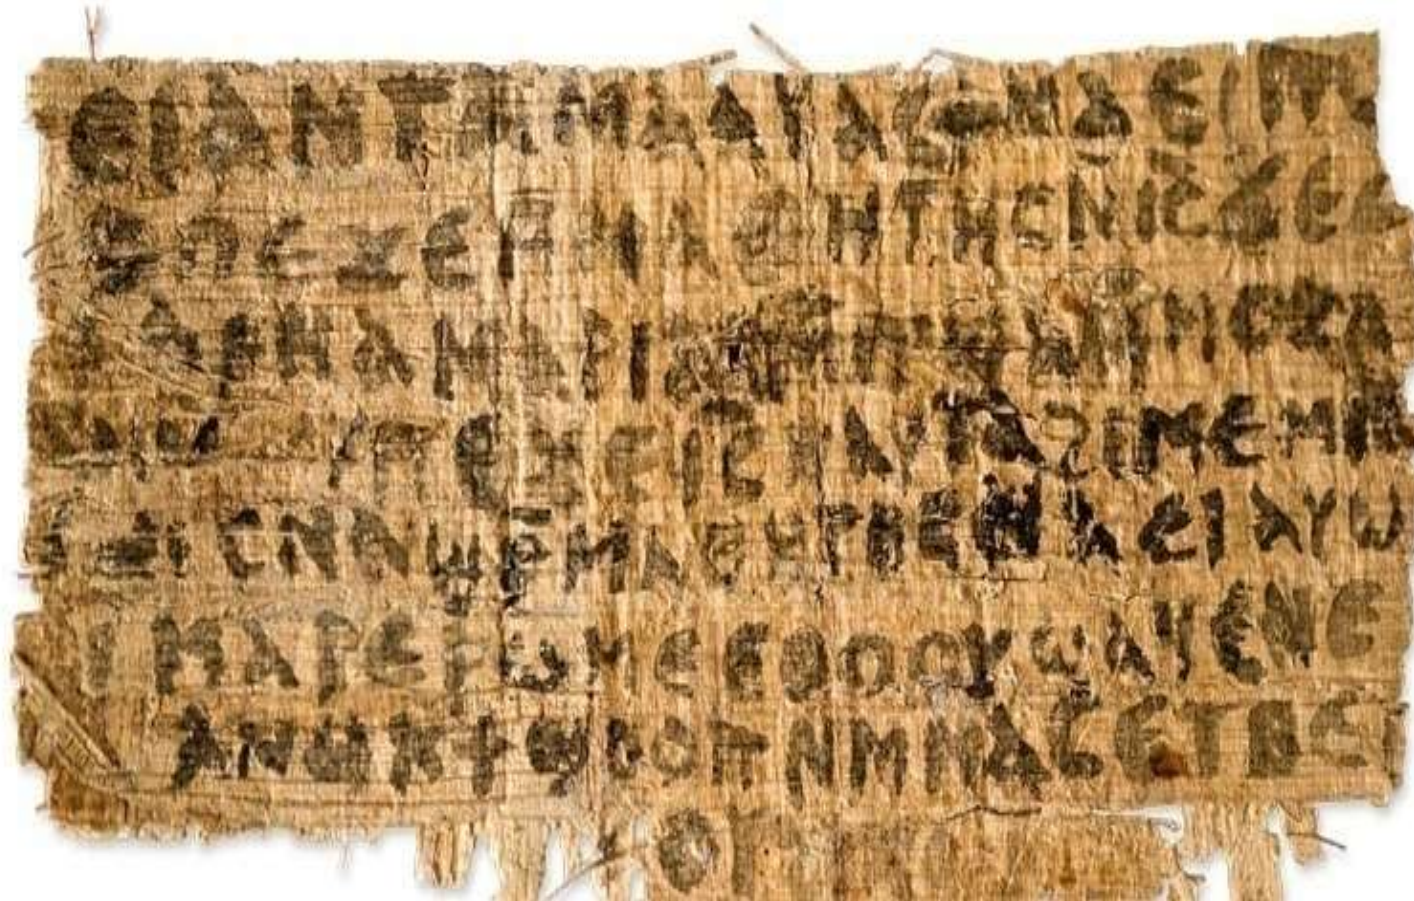 ⲉⲓ ⲁⲛ ⲧⲁⲙⲁⲁⲩ ⲁⲥϯ ⲛⲁⲉⲓ ⲡⲱ
ⲥ ⲡⲉϫⲉ ⲙⲙⲁⲑⲏⲧⲏⲥ ⲛⲓ̅ⲥ̅ ϫⲉ ⲥ
ⲁⲣⲛⲁ ⲙⲁⲣⲓⲁⲙ ⲙⲡϣⲁ ⲙⲙⲟⲥ ⲁ
ⲡⲉϫⲉ ⲓ̅ⲥ̅ ⲛⲁⲩ ⲧⲁϩⲓⲙⲉ ⲙⲛ
ⲥⲛⲁϣⲣ̅ⲙⲁⲑⲏⲧⲏⲥ ⲛⲁⲉⲓ ⲁⲩⲱ
ⲓ ⲙⲁⲣⲉⲣⲱⲙⲉ ⲉⲑⲟⲟⲩ ϣⲁϥⲉ ⲛⲉ
ⲁⲛⲟⲕ ϯϣⲟⲟⲡ ⲛⲙⲙⲁⲥ ⲉⲧⲃⲉ